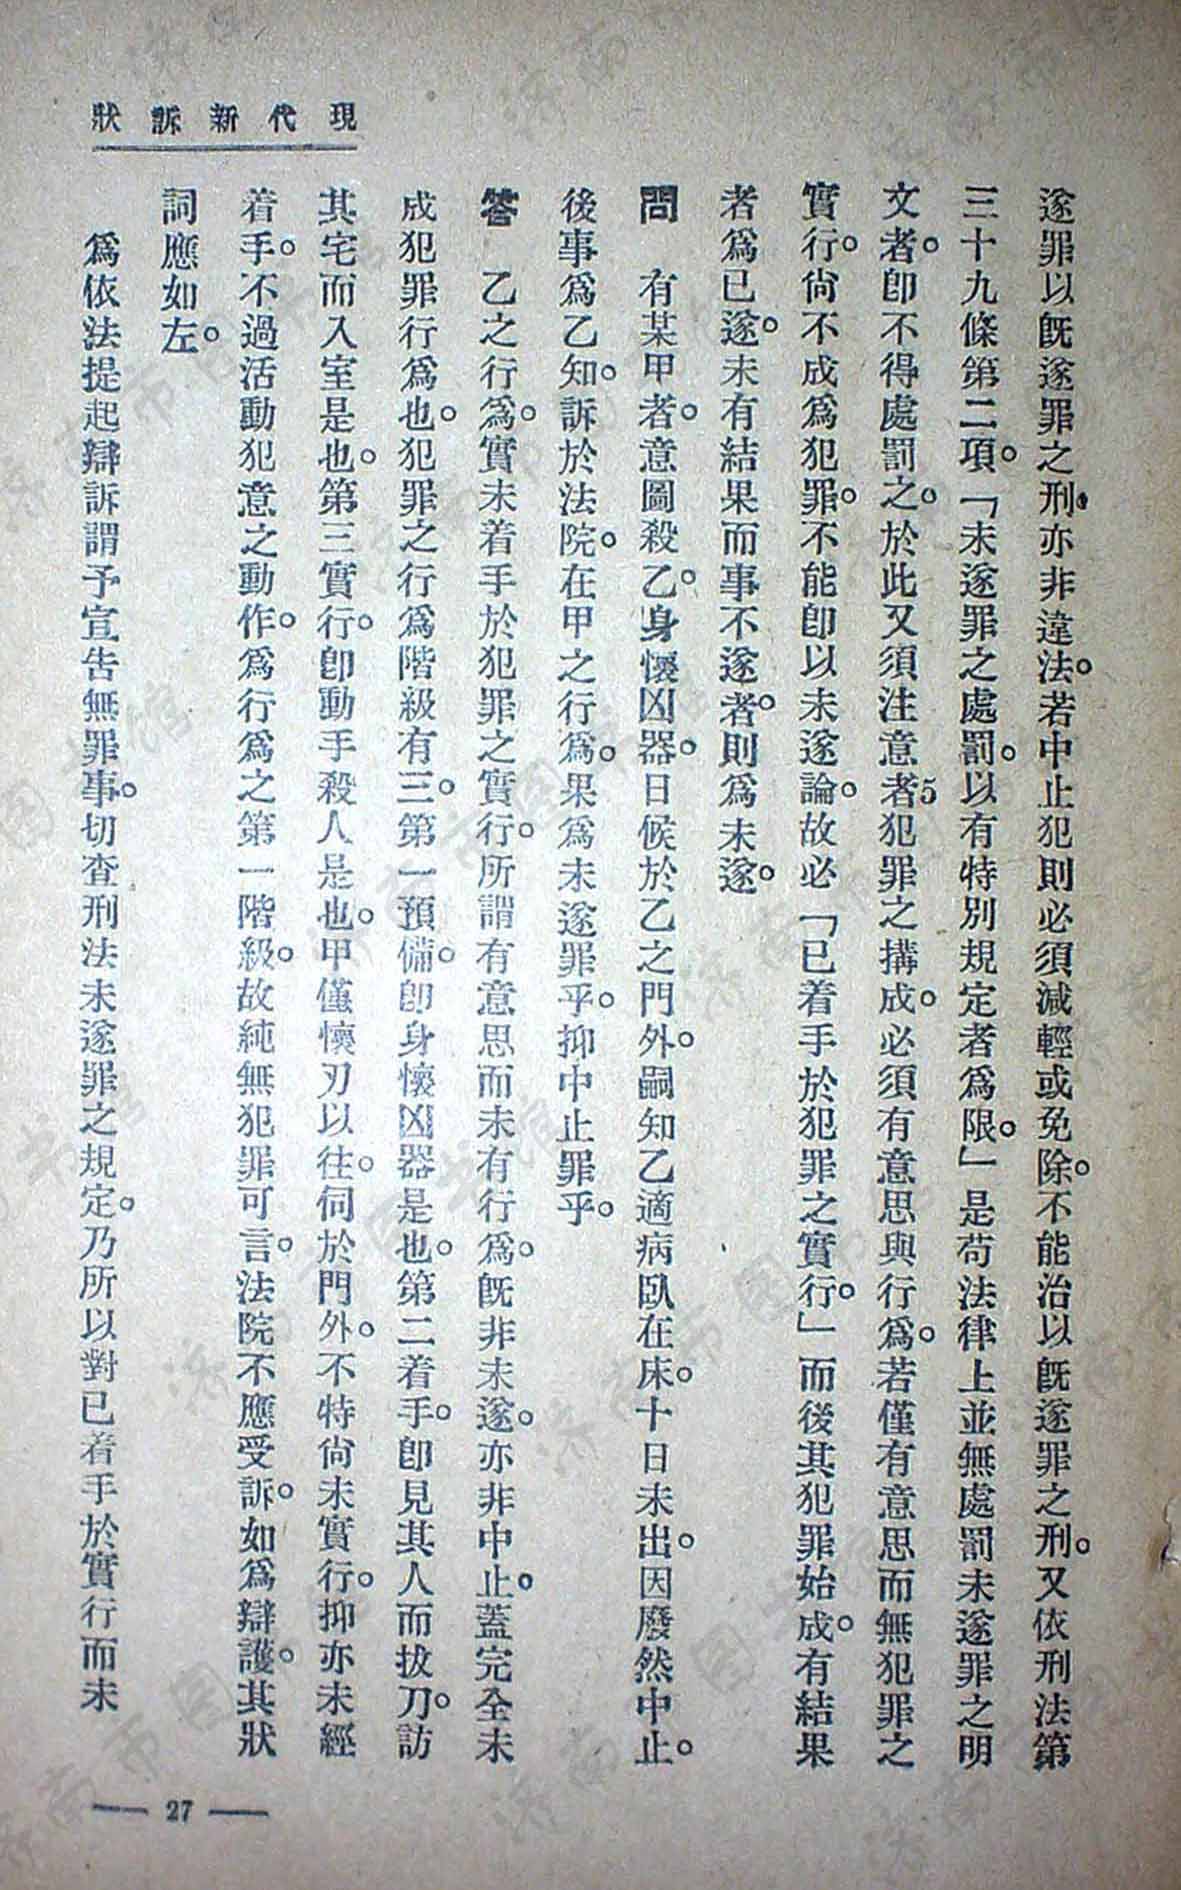 現代新訴狀
遂罪以既遂罪之刑。亦非違法。若中止犯則必須減輕或免除。不能治以既遂罪之刑。又依刑法第
三十九條第二項。「未遂罪之處罰。以有特別規定者爲限。」是苟法律上並無處罰未遂罪之明
文者。卽不得處罰之。於此又須注意者5犯罪之搆成。必須有意思與行爲。若僅有意思而無犯罪之
實行。尙不成爲犯罪。不能卽以未遂論。故必「已着手於犯罪之實行。」而後其犯罪始成。有結果
者爲已遂。未有結果而事不遂者。則爲未遂。
問　有某甲者。意圖殺乙。身懷凶器。日候於乙之門外。嗣知乙適病臥在床。十日未出。因廢然中止。
後事爲乙知。訴於法院。在甲之行爲。果爲未遂罪乎。抑中止罪乎。
答　乙之行爲。實未着手於犯罪之實行。所謂有意思而未有行爲。既非未遂。亦非中止。蓋完全未
成犯罪行爲也。犯罪之行爲階級有三。第一預備。卽身懷凶器是也。第二着手。卽見其人而拔刀。訪
其宅而入室是也。第三實行。卽動手殺人是也。甲僅懷刃以往。伺於門外。不特尙未實行。抑亦未經
着手。不過活動犯意之動作。爲行爲之第一階級。故純無犯罪可言。法院不應受訴。如爲辯護。其狀
詞應如左。
爲依法提起辯訴謂予宣告無罪事。切查刑法未遂罪之規定。乃所以對已着手於實行而未
— 27 —
濟南市图书馆